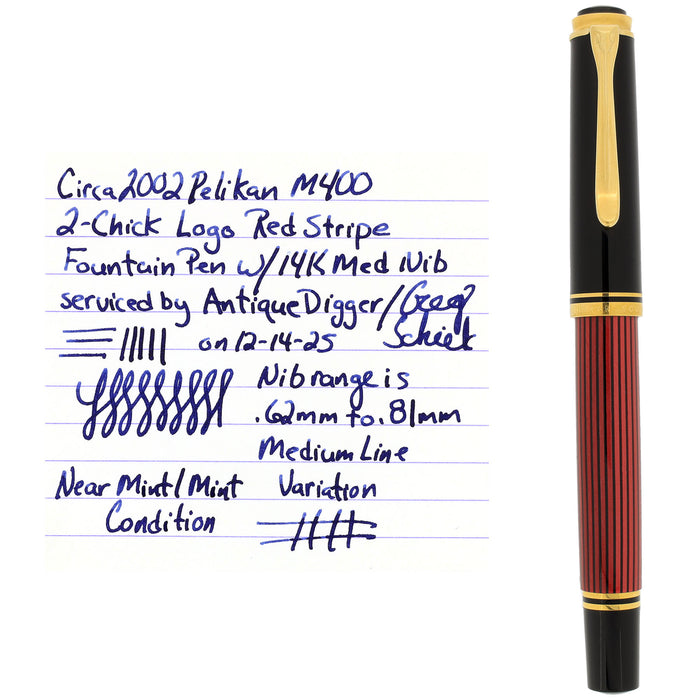 Circa 2002 Pelikan M400
2-Chick Logo Red Stripe
Fountain Pen w/14K Med Nib
serviced by AntiqueDigger/Greg
Schiek on 12-14-25
Nib range is
.62mm to .81mm
Medium Line
Variation
Near Mint/Mint
Condition